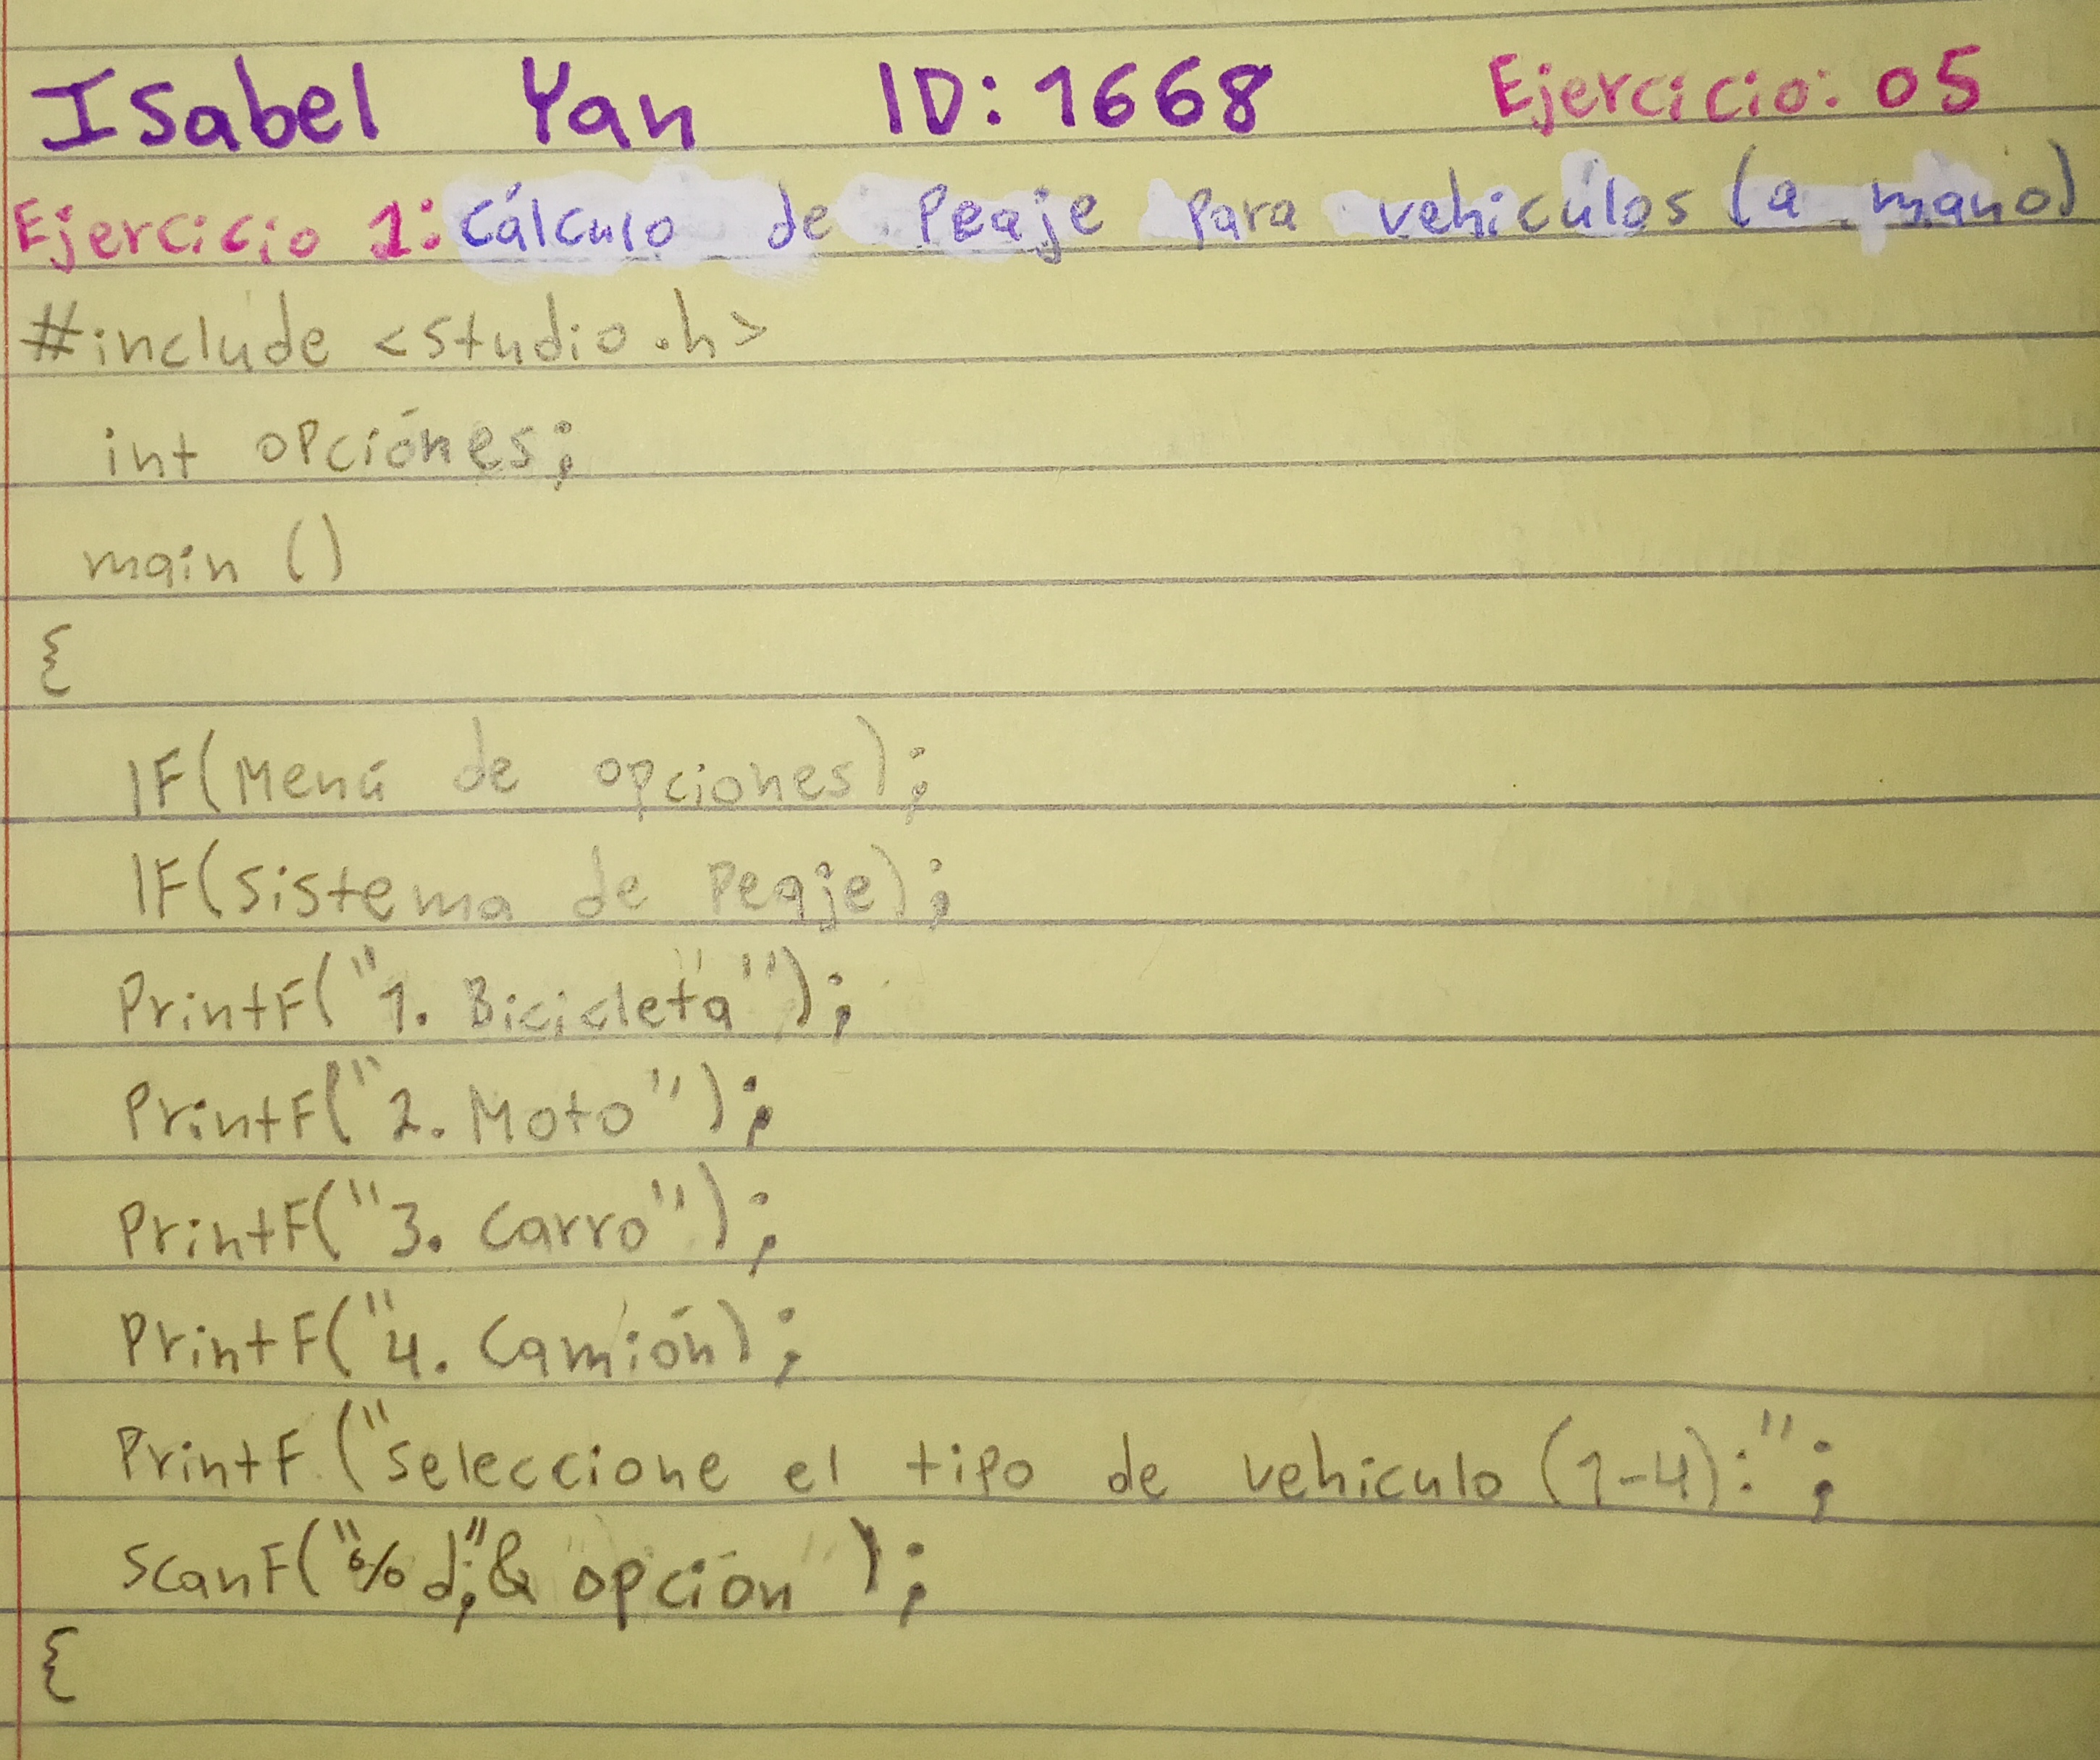 Isabel Yan ID: 1668 Ejercicio: 05
Ejercicio 1: Cálculo de Peaje Para vehicúlos (a mano)
#include <studio.h>
int opciónes;
main ()
{
IF(Menú de opciones);
IF(sistema de Peaje);
PrintF("1. Bicicleta");
PrintF("2. Moto");
PrintF("3. Carro");
PrintF("4. Camión);
PrintF ("Seleccione el tipo de vehiculo (1-4):";
ScanF("%d,"& opción );
{